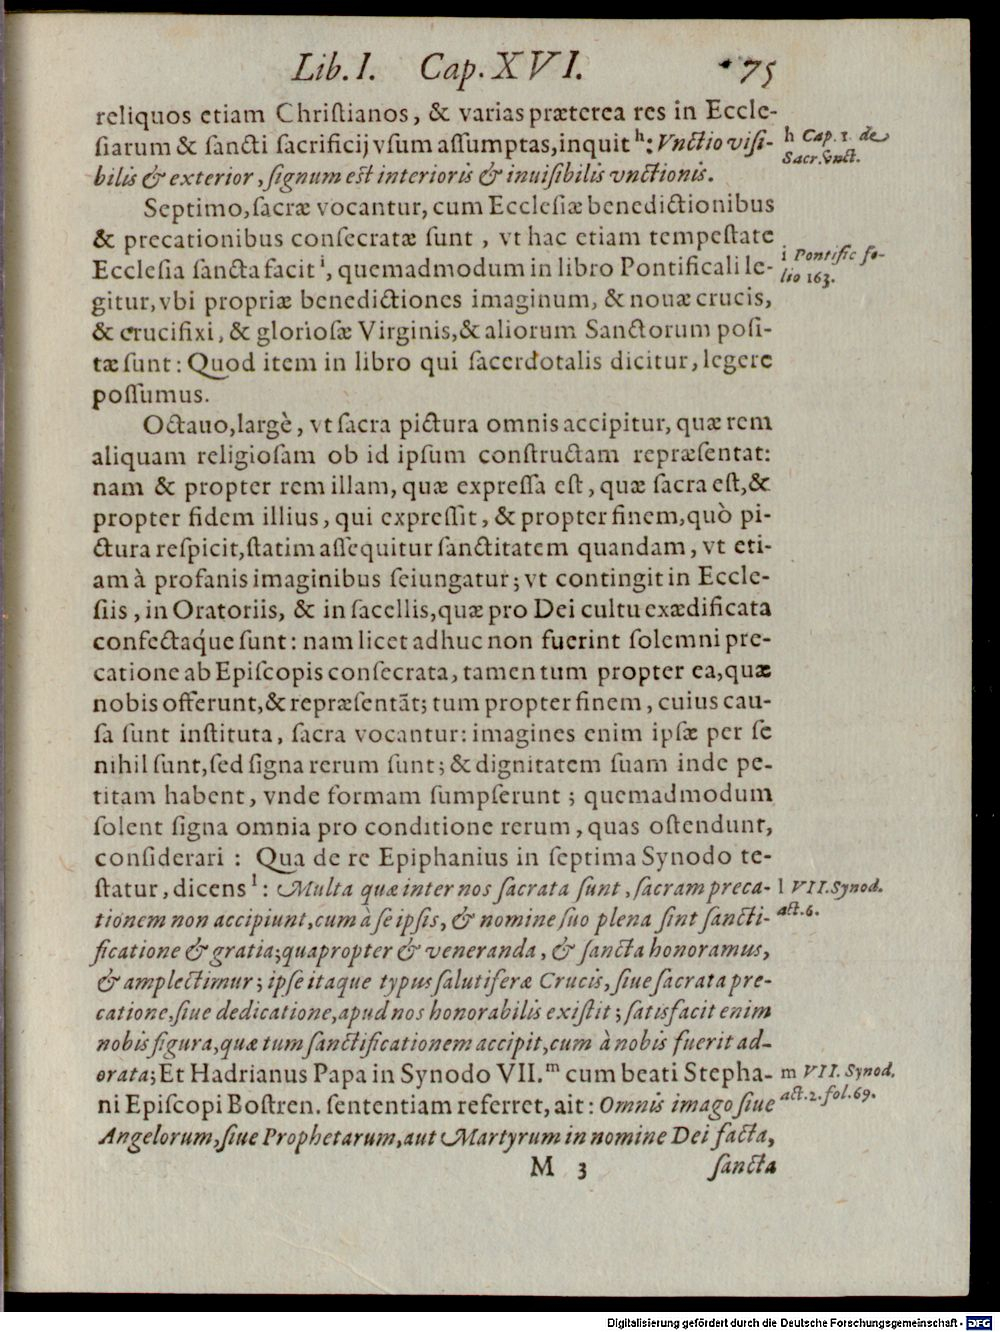 Lib. I. Cap. XVI. 75
reliquos etiam Chriſtianos, & varias præterea res in Eccle-
ſiarum & ſancti ſacrificij vſum aſſumptas, inquit h: Vnctio viſi-
bilis & exterior, ſignum est interioris & inuiſibilis vnctionis.
h Cap. 1. de
Sacr. vnct.
Septimo, ſacræ vocantur, cum Eccleſiæ benedictionibus
& precationibus conſecratæ ſunt, vt hac etiam tempeſtate
Eccleſia ſancta facit i, quemadmodum in libro Pontificali le-
i Pontific fo-
lio 163.
gitur, vbi propriæ benedictiones imaginum, & nouæ crucis,
& crucifixi, & glorioſæ Virginis, & aliorum Sanctorum poſi-
tæ ſunt: Quod item in libro qui ſacerdotalis dicitur, legere
poſſumus.
Octauo, largè, vt ſacra pictura omnis accipitur, quæ rem
aliquam religioſam ob id ipſum conſtructam repræſentat:
nam & propter rem illam, quæ expreſſa eſt, quæ ſacra eſt, &
propter fidem illius, qui expreſſit, & propter finem, quò pi-
ctura reſpicit, ſtatim aſſequitur ſanctitatem quandam, vt eti-
am à profanis imaginibus ſeiungatur; vt contingit in Eccle-
ſiis, in Oratoriis, & in ſacellis, quæ pro Dei cultu exædificata
confectaq́ue ſunt: nam licet adhuc non fuerint ſolemni pre-
catione ab Epiſcopis conſecrata, tamen tum propter ea, quæ
nobis offerunt, & repræſentāt; tum propter finem, cuius cau-
ſa ſunt inſtituta, ſacra vocantur: imagines enim ipſæ per ſe
nihil ſunt, ſed ſigna rerum ſunt; & dignitatem ſuam inde pe-
titam habent, vnde formam ſumpſerunt; quemadmodum
ſolent ſigna omnia pro conditione rerum, quas oſtendunt,
conſiderari: Qua de re Epiphanius in ſeptima Synodo te-
ſtatur, dicens l: Multa quæ inter nos ſacrata ſunt, ſacram preca-
l VII. Synod.
act. 6.
tionem non accipiunt, cum à ſe ipſis, & nomine ſuo plena ſint ſancti-
ficatione & gratia; quapropter & veneranda, & ſancta honoramus,
& amplectimur; ipſe itaque typus ſalutiferæ Crucis, ſiue ſacrata pre-
catione, ſiue dedicatione, apud nos honorabilis exiſtit; ſatisfacit enim
nobis figura, quæ tum ſanctificationem accipit, cum à nobis fuerit ad-
orata; Et Hadrianus Papa in Synodo VII. m cum beati Stepha-
m VII. Synod.
act. 2. fol. 69.
ni Epiſcopi Boſtren. ſententiam referret, ait: Omnis imago ſiue
Angelorum, ſiue Prophetarum, aut Martyrum in nomine Dei facta,
M 3 ſancta
Digitalisierung gefördert durch die Deutsche Forschungsgemeinschaft - DFG